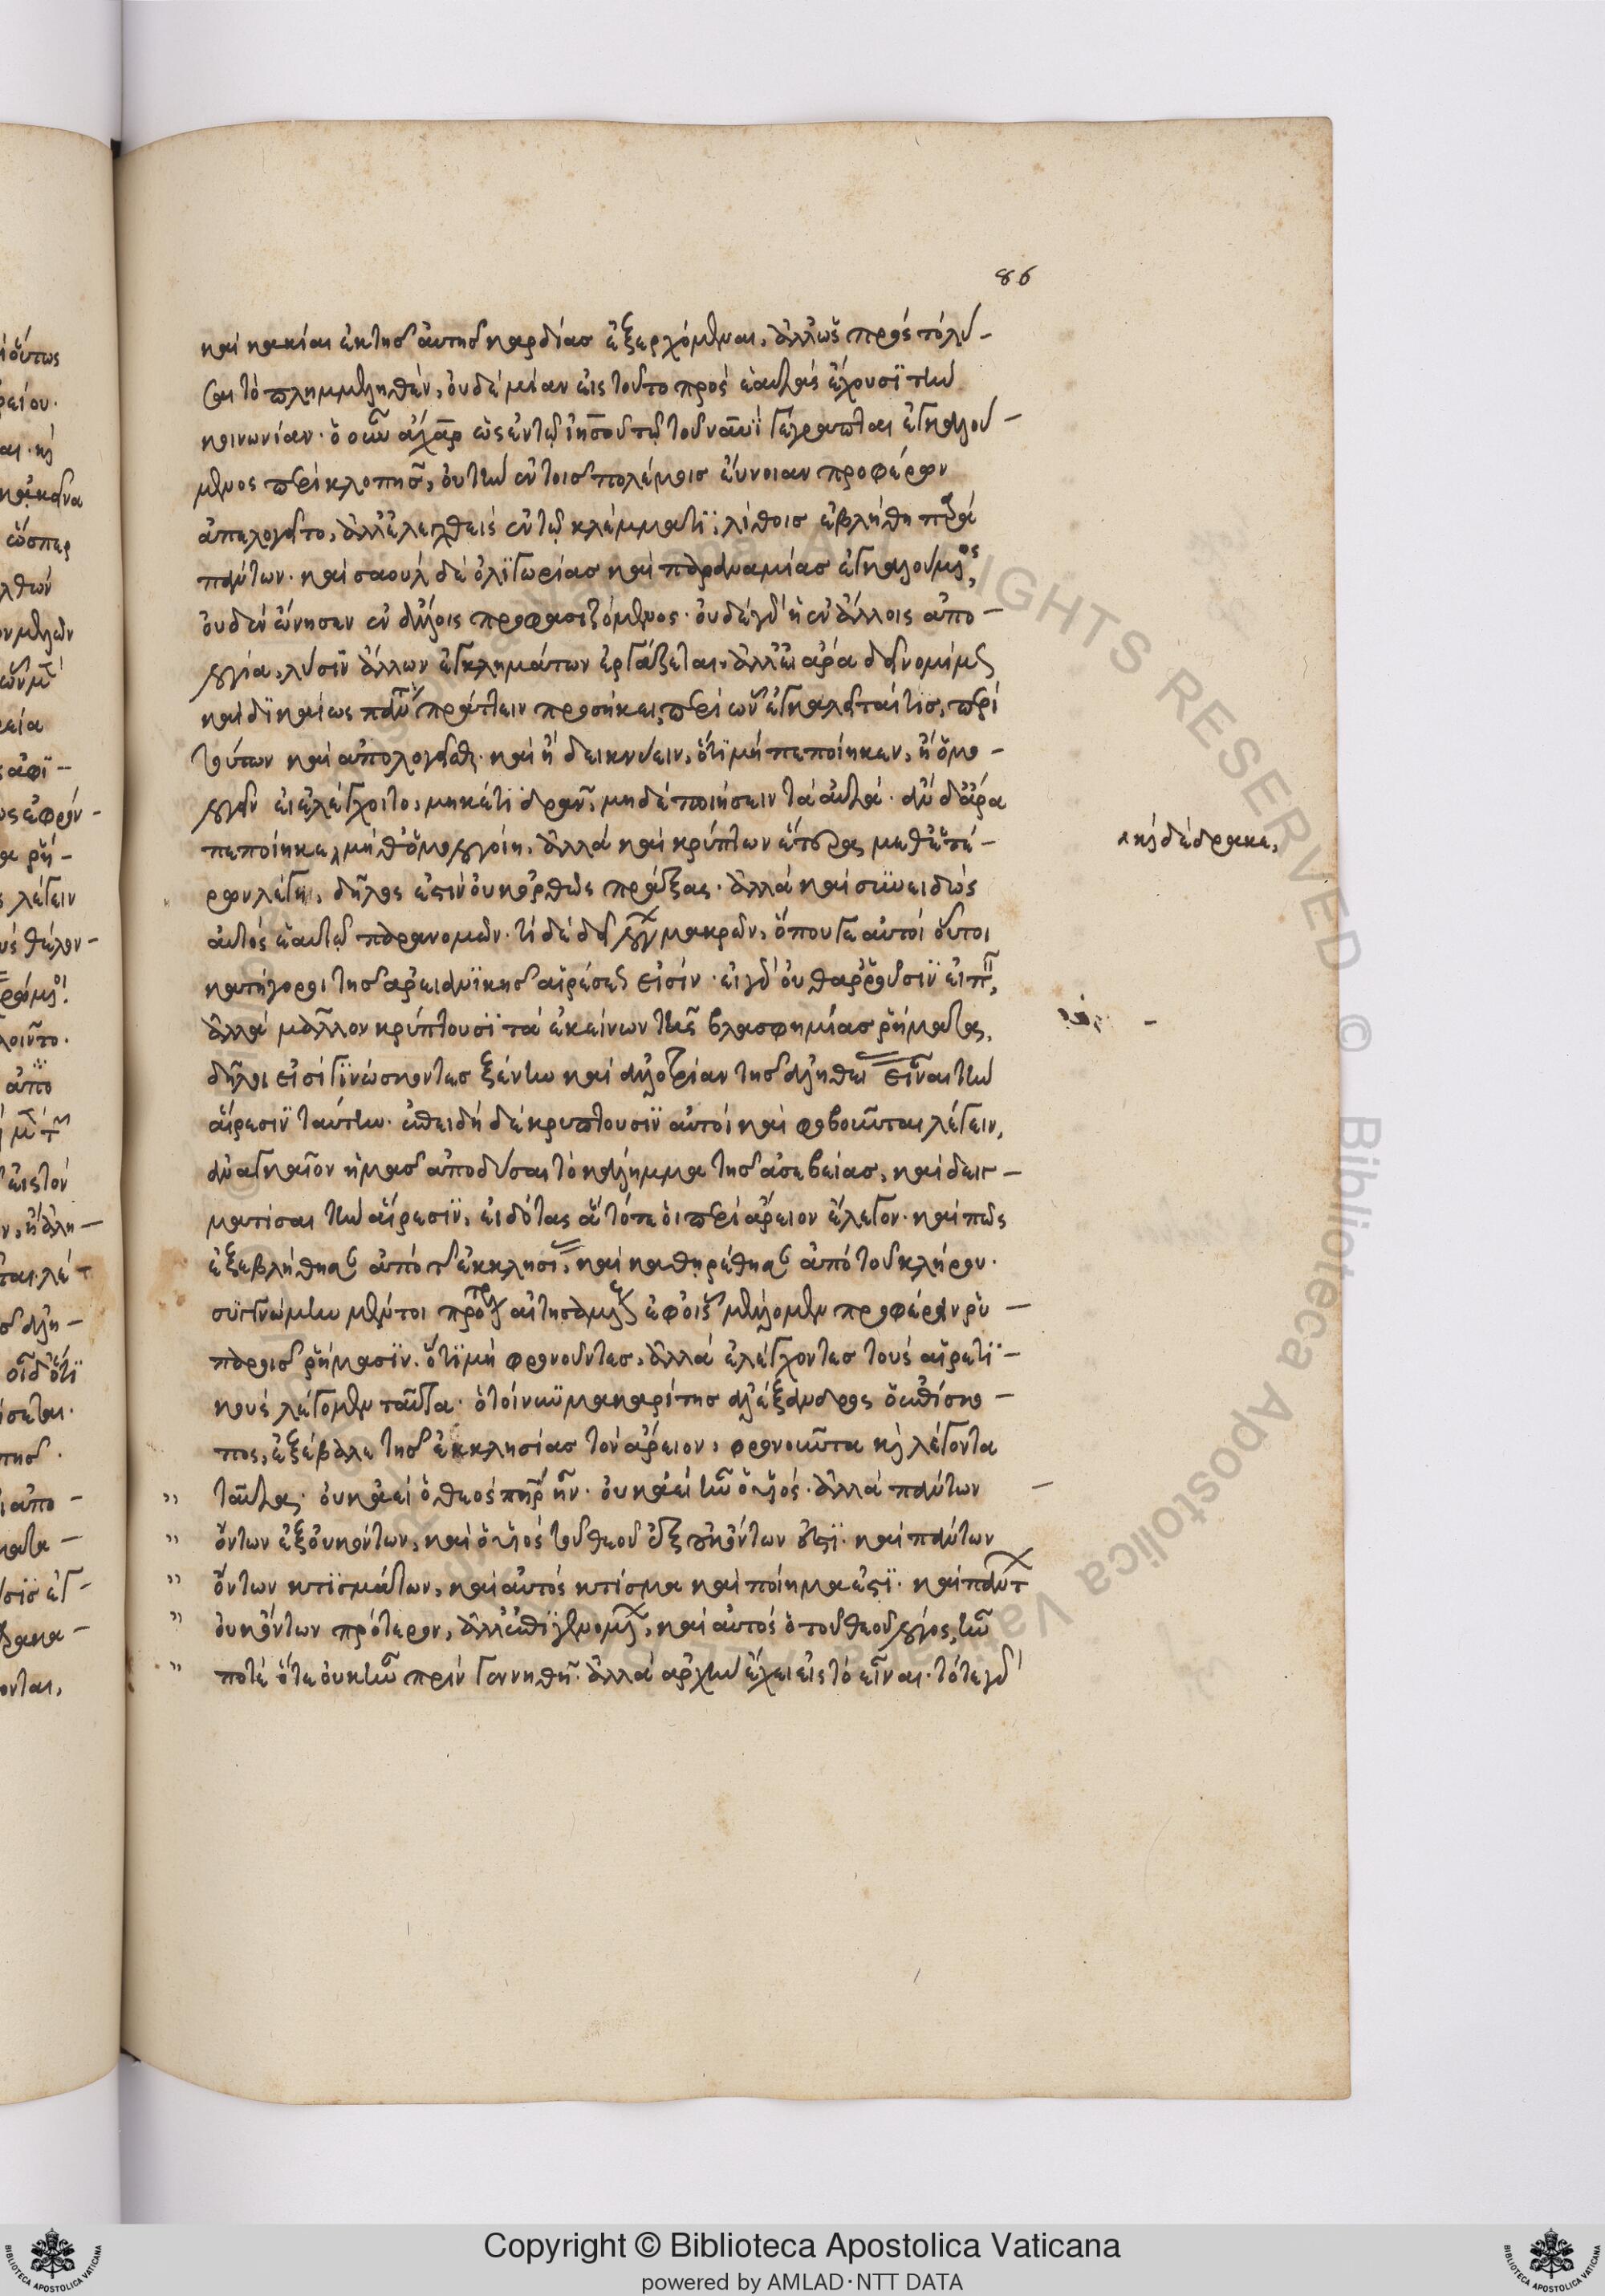 86
καὶ κακίαι ἐκ τῆς αὐτῆς καρδίας ἐξερχόμεναι, ἀλλ' ὡς πρὸς τὸ λῦ-
σαι τὸ πλημμεληθὲν, οὐδὲ μίαν εἰς τοῦτο πρὸς ἑαυτὰς ἔχουσι τὴν
κοινωνίαν. ὁ γοῦν ἄχαρ ὡς ἐν τῷ ἰησοῦ τῷ τοῦ ναυῆ γέγραπται ἐγκαλού-
μενος περὶ κλοπῆς, οὐ τὴν ἐν τοῖς πολέμοις εὔνοιαν προφέρων
ἀπελογεῖτο, ἀλλ' ἐλεγχθεὶς ἐν τῷ κλέμματι, λίθοις ἐβλήθη παρὰ
πάντων. καὶ σαοὺλ δὲ ὀλιγωρίας καὶ παρανομίας ἐγκαλούμενος,
οὐδὲν ὤνησεν ἐν ἄλλοις προφασιζόμενος. οὐδὲ γὰρ ἡ ἐν ἄλλοις ἀπο-
λογία, λύσιν ἄλλων ἐγκλημάτων ἐργάζεται. ἀλλ' εἰ ἄρα δεῖ νομίμως
καὶ δικαίως πάντα πράττειν προσήκει, περὶ ὧν ἐγκαλεῖταί τις, περὶ
τούτων καὶ ἀπολογεῖσθαι. καὶ ἢ δεικνύειν, ὅτι μὴ πεποίηκεν, ἢ ὁμο-
λογεῖν εἰ ἐλέγχοιτο, μηκέτι δρᾶν, μηδὲ ποιήσειν τὰ αὐτά. ἂν δ' ἄρα
πεποίηκε, μὴ θ' ὁμολογοίη. ἀλλὰ καὶ κρύπτων ἕτερα μεθ' ἑτέ-
ρων λέγῃ, δῆλός ἐστιν οὐκ ὀρθῶς πράξας. ἀλλὰ καὶ συνειδὼς
αὐτὸς ἑαυτῷ παρανομῶν. τί δὲ δεῖ λόγων μακρῶν, ὅπου γε αὐτοὶ οὗτοι
κατήγοροι τῆς ἀρειανικῆς αἱρέσεώς εἰσιν. εἰ γὰρ οὐ θαρροῦσιν εἰπεῖν,
ἀλλὰ μᾶλλον κρύπτουσι τὰ ἐκείνων τῆς βλασφημίας ῥήματα,
δῆλοί εἰσι γινώσκοντες ξένην καὶ ἀλλοτρίαν τῆς ἀληθείας εἶναι τὴν
αἵρεσιν ταύτην. ἐπειδὴ δὲ κρύπτουσιν αὐτοὶ καὶ φοβοῦνται λέγειν,
ἀναγκαῖον ἡμᾶς ἀποδῦσαι τὸ κάλυμμα τῆς ἀσεβείας, καὶ δειγ-
ματίσαι τὴν αἵρεσιν, εἰδότας ἃ τότε οἱ περὶ ἄρειον ἔλεγον. καὶ πῶς
ἐξεβλήθησαν ἀπὸ τῆς ἐκκλησίας, καὶ καθῃρέθησαν ἀπὸ τοῦ κλήρου.
συγγνώμην μέντοι πρότερον αἰτησάμενος ἐφ' οἷς μέλλομεν προφέρειν ῥυ-
παροῖς ῥήμασιν. ὅτι μὴ φρονοῦντες, ἀλλὰ ἐλέγχοντες τοὺς αἱρετι-
κοὺς λέγομεν ταῦτα. ὁ τοίνυν μακαρίτης ἀλέξανδρος ὁ ἐπίσκο-
πος, ἐξέβαλε τῆς ἐκκλησίας τὸν ἄρειον, φρονοῦντα καὶ λέγοντα
ταῦτα. οὐκ ἀεὶ ὁ θεὸς πατὴρ ἦν. οὐκ ἀεὶ ἦν ὁ υἱός. ἀλλὰ πάντων
ὄντων ἐξ οὐκ ὄντων, καὶ ὁ υἱὸς τοῦ θεοῦ ἐξ οὐκ ὄντων ἐστί. καὶ πάντων
ὄντων κτισμάτων, καὶ αὐτὸς κτίσμα καὶ ποίημά ἐστι. καὶ πάντων
οὐκ ὄντων πρότερον, ἀλλ' ἐπιγενομένων, καὶ αὐτὸς ὁ τοῦ θεοῦ λόγος, ἦν
ποτὲ ὅτε οὐκ ἦν πρὶν γεννηθῇ. ἀλλὰ ἀρχὴν ἔχει εἰς τὸ εἶναι. τότε γὰρ
καὶ δέδρακε,